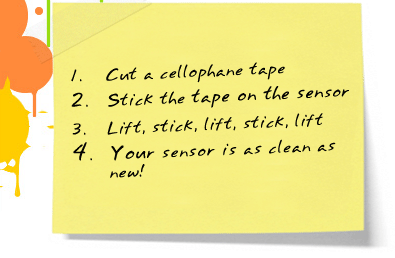 1. Cut a cellophane tape
2. Stick the tape on the sensor
3. Lift, stick, lift, stick, lift
4. Your sensor is as clean as
new!